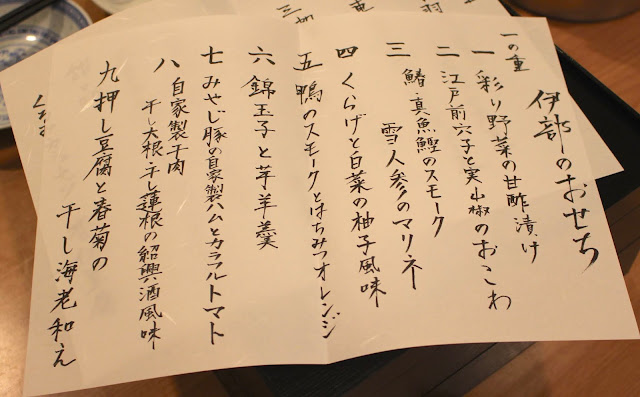 伊部のおせち
一の重
一 彩り野菜の甘酢漬け
二 江戸前穴子と実山椒のおこわ
三 鰆・真魚鰹のスモーク
雪人参のマリネ
四 くらげと白菜の柚子風味
五 鴨のスモークとはちみつオレンジ
六 錦玉子と芋羊羹
七 みやじ豚の自家製ハムとカラフルトマト
八 自家製干肉
干し大根・干し蓮根の紹興酒風味
九 押し豆腐と春菊の
干し海老和え